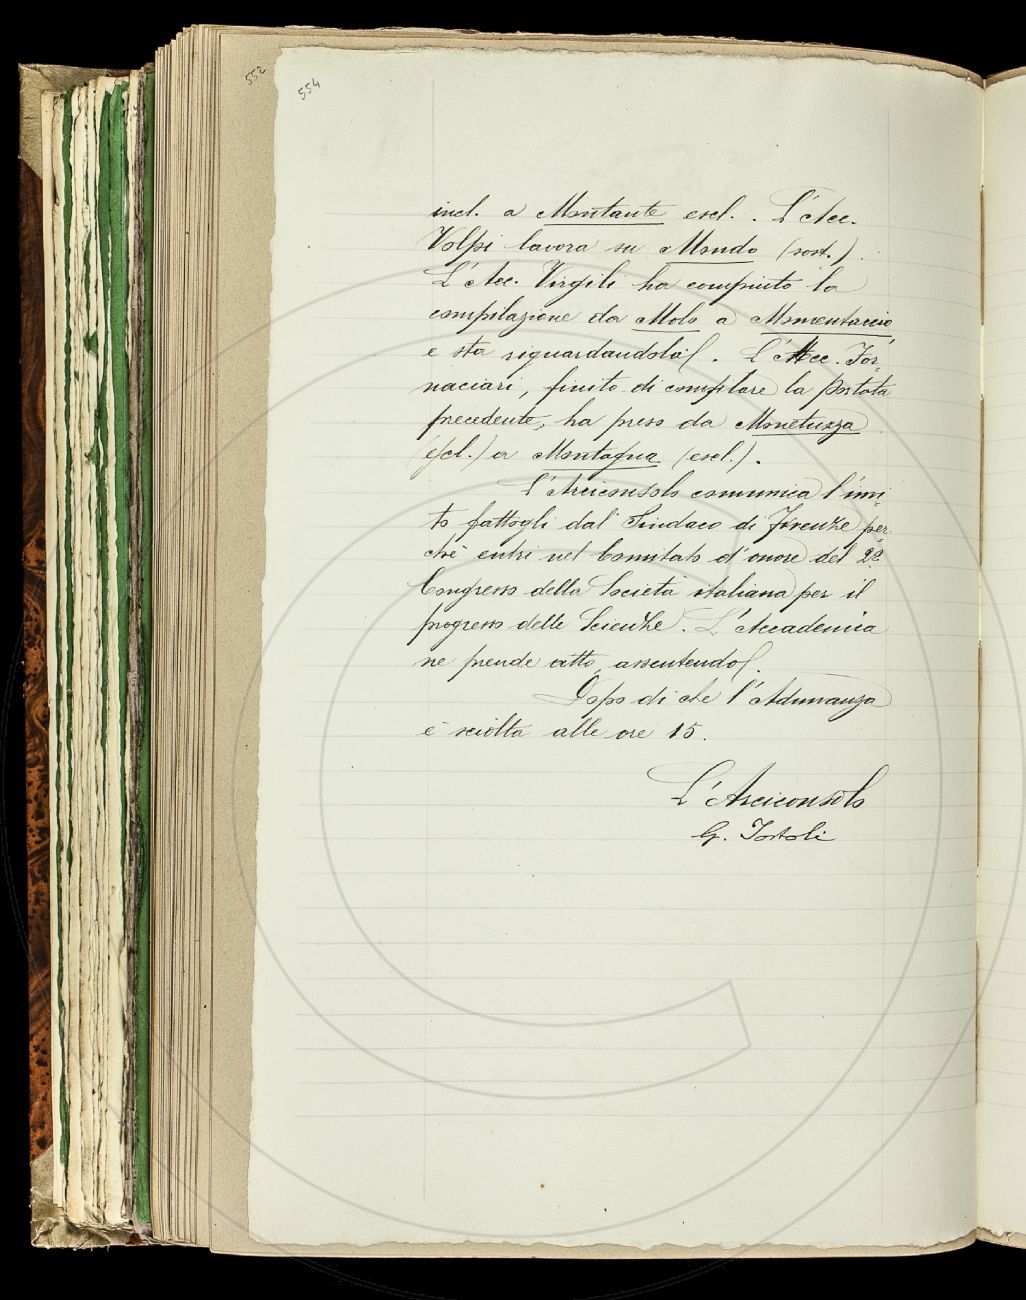 552
554
incl. a Montante escl. . L'Acc.
Volpi lavora su Mondo (sost.).
L'Acc. Virgili ha compiuto la
compilazione da Molo a Momentaccio
e sta riguardandola. L'Acc. For=
naciari, finito di compilare la portata
precedente, ha preso da Monetuzza
(escl.) a Montagna (escl.).
L'Arciconsolo comunica l'invi=
to fattogli dal Sindaco di Firenze per=
chè entri nel Comitato d'onore del 2º
Congresso della Società italiana per il
progresso delle Scienze. L'Accademia
ne prende atto, assentendo.
Dopo di che l'Adunanza
è sciolta alle ore 15.
L'Arciconsolo
G. Tortoli